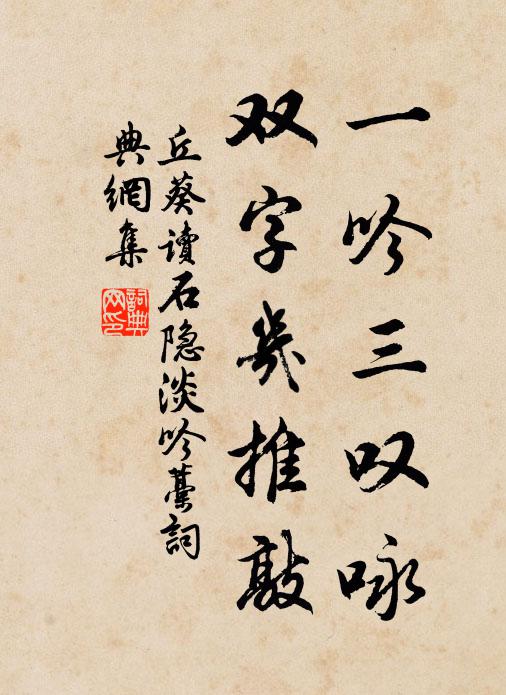 一吟三叹咏
双字几推敲
丘葵读石隐淡吟藁词
典網集
詞典網印